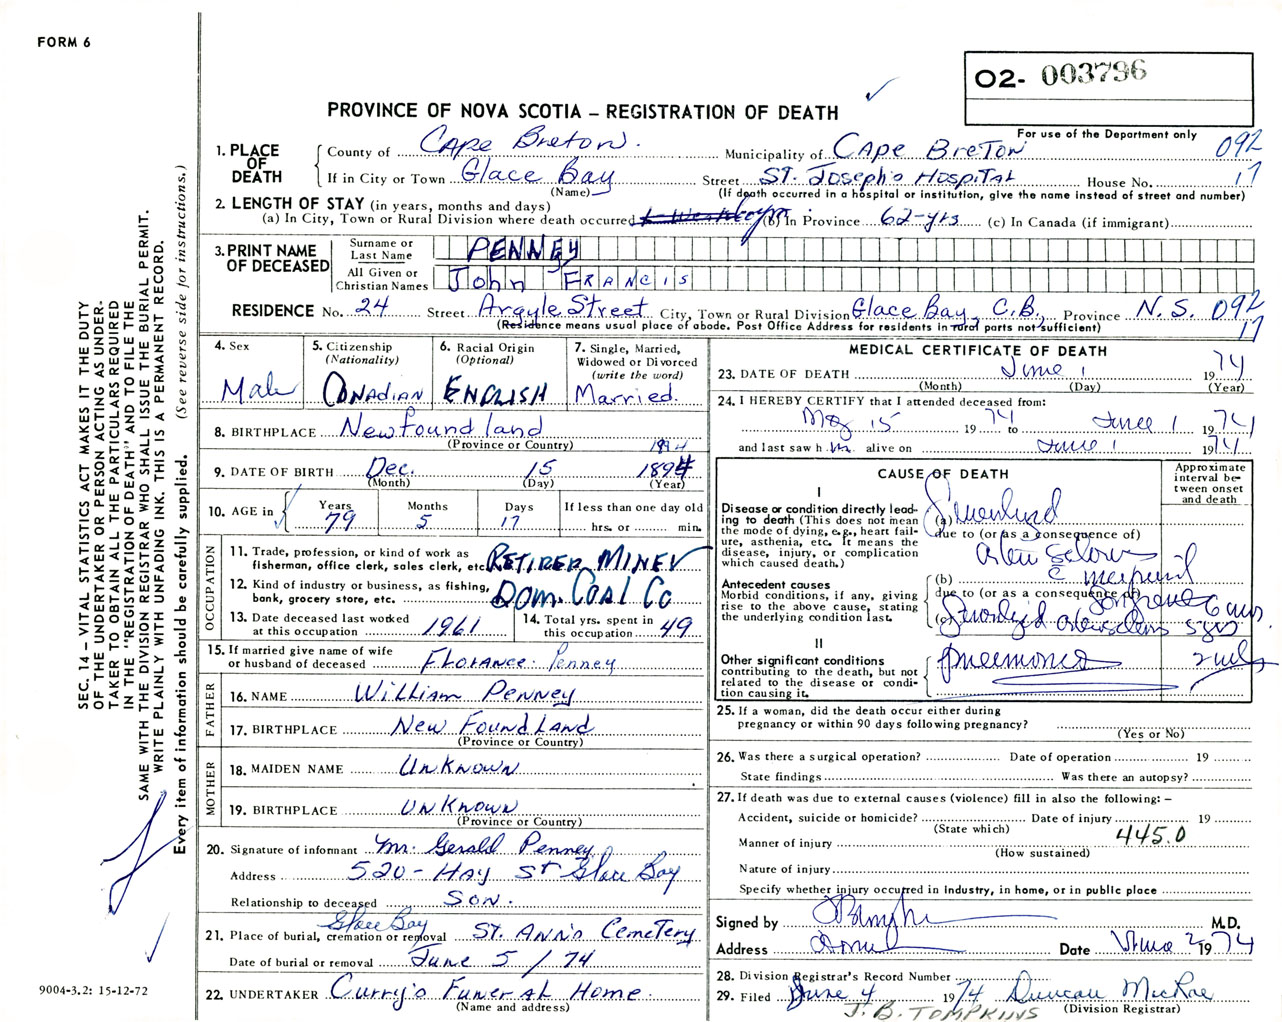 FORM 6
O2- 003796
For use of the Department only
PROVINCE OF NOVA SCOTIA – REGISTRATION OF DEATH
1. PLACE OF DEATH
County of Cape Breton. Municipality of Cape Breton 092
If in City or Town Glace Bay Street St. Joseph's Hospital House No. 17
(Name) (If death occurred in a hospital or institution, give the name instead of street and number)
2. LENGTH OF STAY (in years, months and days)
(a) In City, Town or Rural Division where death occurred (b) In Province 62-yrs (c) In Canada (if immigrant)
3. PRINT NAME OF DECEASED
Surname or Last Name PENNEY
All Given or Christian Names John FRANCIS
RESIDENCE No. 24 Street Argyle Street City, Town or Rural Division Glace Bay, C.B., Province N.S. 092
(Residence means usual place of abode. Post Office Address for residents in rural parts not sufficient) 17
4. Sex Male
5. Citizenship (Nationality) CANADIAN
6. Racial Origin (Optional) ENGLISH
7. Single, Married, Widowed or Divorced (write the word) Married.
8. BIRTHPLACE Newfoundland
(Province or Country)
1894
9. DATE OF BIRTH Dec. 15 1894
(Month) (Day) (Year)
10. AGE in Years 79 Months 5 Days 17 If less than one day old hrs. or min.
OCCUPATION
11. Trade, profession, or kind of work as fisherman, office clerk, sales clerk, etc. RETIRED MINER
12. Kind of industry or business, as fishing, bank, grocery store, etc. DOM. COAL CO
13. Date deceased last worked at this occupation 1961
14. Total yrs. spent in this occupation 49
15. If married give name of wife or husband of deceased Florance Penney
FATHER
16. NAME William Penney
17. BIRTHPLACE New Foundland
(Province or Country)
MOTHER
18. MAIDEN NAME Unknown
19. BIRTHPLACE Unknown
(Province or Country)
20. Signature of informant Mr. Gerald Penney
Address 520 - Hay St Glace Bay
Relationship to deceased Son.
Glace Bay
21. Place of burial, cremation or removal St. Ann's Cemetery
Date of burial or removal June 5 / 74
22. UNDERTAKER Curry's Funeral Home.
(Name and address)
MEDICAL CERTIFICATE OF DEATH
23. DATE OF DEATH June 1 1974
(Month) (Day) (Year)
24. I HEREBY CERTIFY that I attended deceased from:
May 15 1974 to June 1 1974
and last saw him alive on June 1 1974
CAUSE OF DEATH
Approximate interval between onset and death
I
Disease or condition directly leading to death (This does not mean the mode of dying, e.g., heart failure, asthenia, etc. It means the disease, injury, or complication which caused death.)
(a)
due to (or as a consequence of)
Antecedent causes
Morbid conditions, if any, giving rise to the above cause, stating the underlying condition last.
(b)
due to (or as a consequence of)
(c) 5 yrs
II
Other significant conditions contributing to the death, but not related to the disease or condition causing it.
pneumonia
25. If a woman, did the death occur either during pregnancy or within 90 days following pregnancy?
(Yes or No)
26. Was there a surgical operation? Date of operation 19
State findings Was there an autopsy?
27. If death was due to external causes (violence) fill in also the following: –
Accident, suicide or homicide? Date of injury 19
(State which) 445.0
Manner of injury
(How sustained)
Nature of injury
Specify whether injury occurred in industry, in home, or in public place
Signed by M.D.
Address Date June 2 1974
28. Division Registrar's Record Number
29. Filed June 4 1974 Duncan MacRae
J.B. TOMPKINS (Division Registrar)
SEC. 14 – VITAL STATISTICS ACT MAKES IT THE DUTY
OF THE UNDERTAKER OR PERSON ACTING AS UNDER-
TAKER TO OBTAIN ALL THE PARTICULARS REQUIRED
IN THE "REGISTRATION OF DEATH" AND TO FILE THE
SAME WITH THE DIVISION REGISTRAR WHO SHALL ISSUE THE BURIAL PERMIT.
WRITE PLAINLY WITH UNFADING INK. THIS IS A PERMANENT RECORD.
Every item of information should be carefully supplied. (See reverse side for instructions.)
9004-3.2: 15-12-72